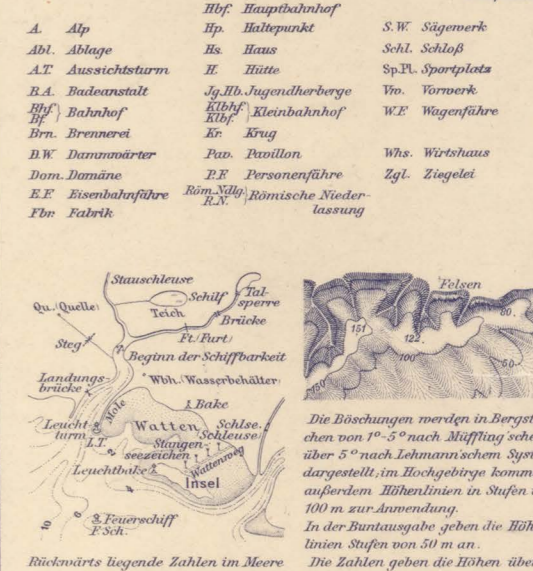 Hbf. Hauptbahnhof
A. Alp
Abl. Ablage
A.T. Aussichtsturm
B.A. Badeanstalt
Bhf. Bf. } Bahnhof
Brn. Brennerei
D.W. Dammwärter
Dom. Domäne
E.F. Eisenbahnfähre
Fbr. Fabrik
Hp. Haltepunkt
Hs. Haus
H. Hütte
Jg.Hb. Jugendherberge
Klbhf. Klbf. } Kleinbahnhof
Kr. Krug
Pav. Pavillon
P.F. Personenfähre
Röm.Ndlg. R.N. } Römische Nieder-
lassung
S.W. Sägewerk
Schl. Schloß
Sp.Pl. Sportplatz
Vw. Vorwerk
W.F. Wagenfähre
Whs. Wirtshaus
Zgl. Ziegelei
Stauschleuse
Qu. (Quelle)
Schilf
Teich
Tal-
sperre
Brücke
Steg
Ft. (Furt)
Beginn der Schiffbarkeit
Landungs-
brücke
Wbh. (Wasserbehälter)
Mole
Bake
Leucht-
turm
L.T.
Watten
Schlse.
(Schleuse)
Stangen-
seezeichen
Wattenweg
Leuchtbake
Insel
2
4
6
10
Feuerschiff
F.Sch.
Rückwärts liegende Zahlen im Meere
Felsen
151
122
100
80
50
150
Die Böschungen werden in Bergst
chen von 1°-5° nach Müffling'sche
über 5° nach Lehmann'schem Syst
dargestellt; im Hochgebirge komm
außerdem Höhenlinien in Stufen
100 m zur Anwendung.
In der Buntausgabe geben die Höh
linien Stufen von 50 m an.
Die Zahlen geben die Höhen übe